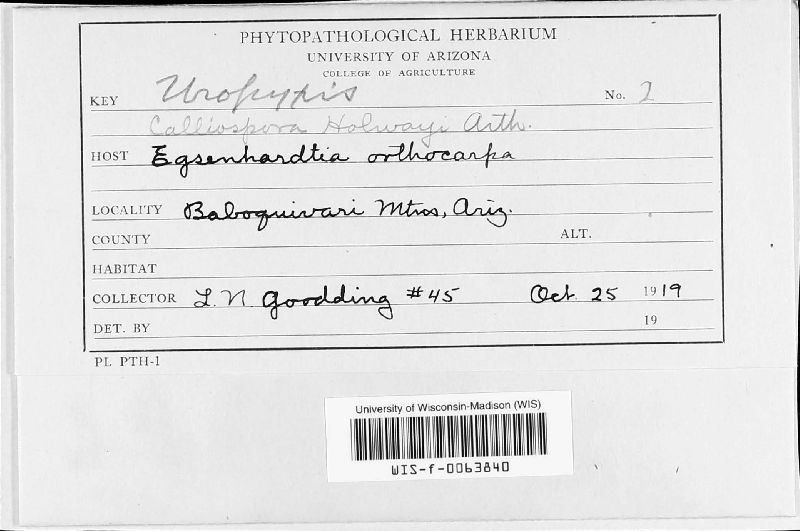 PHYTOPATHOLOGICAL HERBARIUM
UNIVERSITY OF ARIZONA
COLLEGE OF AGRICULTURE
KEY Uropyxis No. 2
Calliospora Holwayi Arth.
HOST Egsenhardtia orthocarpa
LOCALITY Baboquivari Mtns, Ariz.
COUNTY ALT.
HABITAT
COLLECTOR L. N. Goodding #45 Oct 25 1919
DET. BY 19
PL PTH-1
University of Wisconsin-Madison (WIS)
WIS-f-0063840